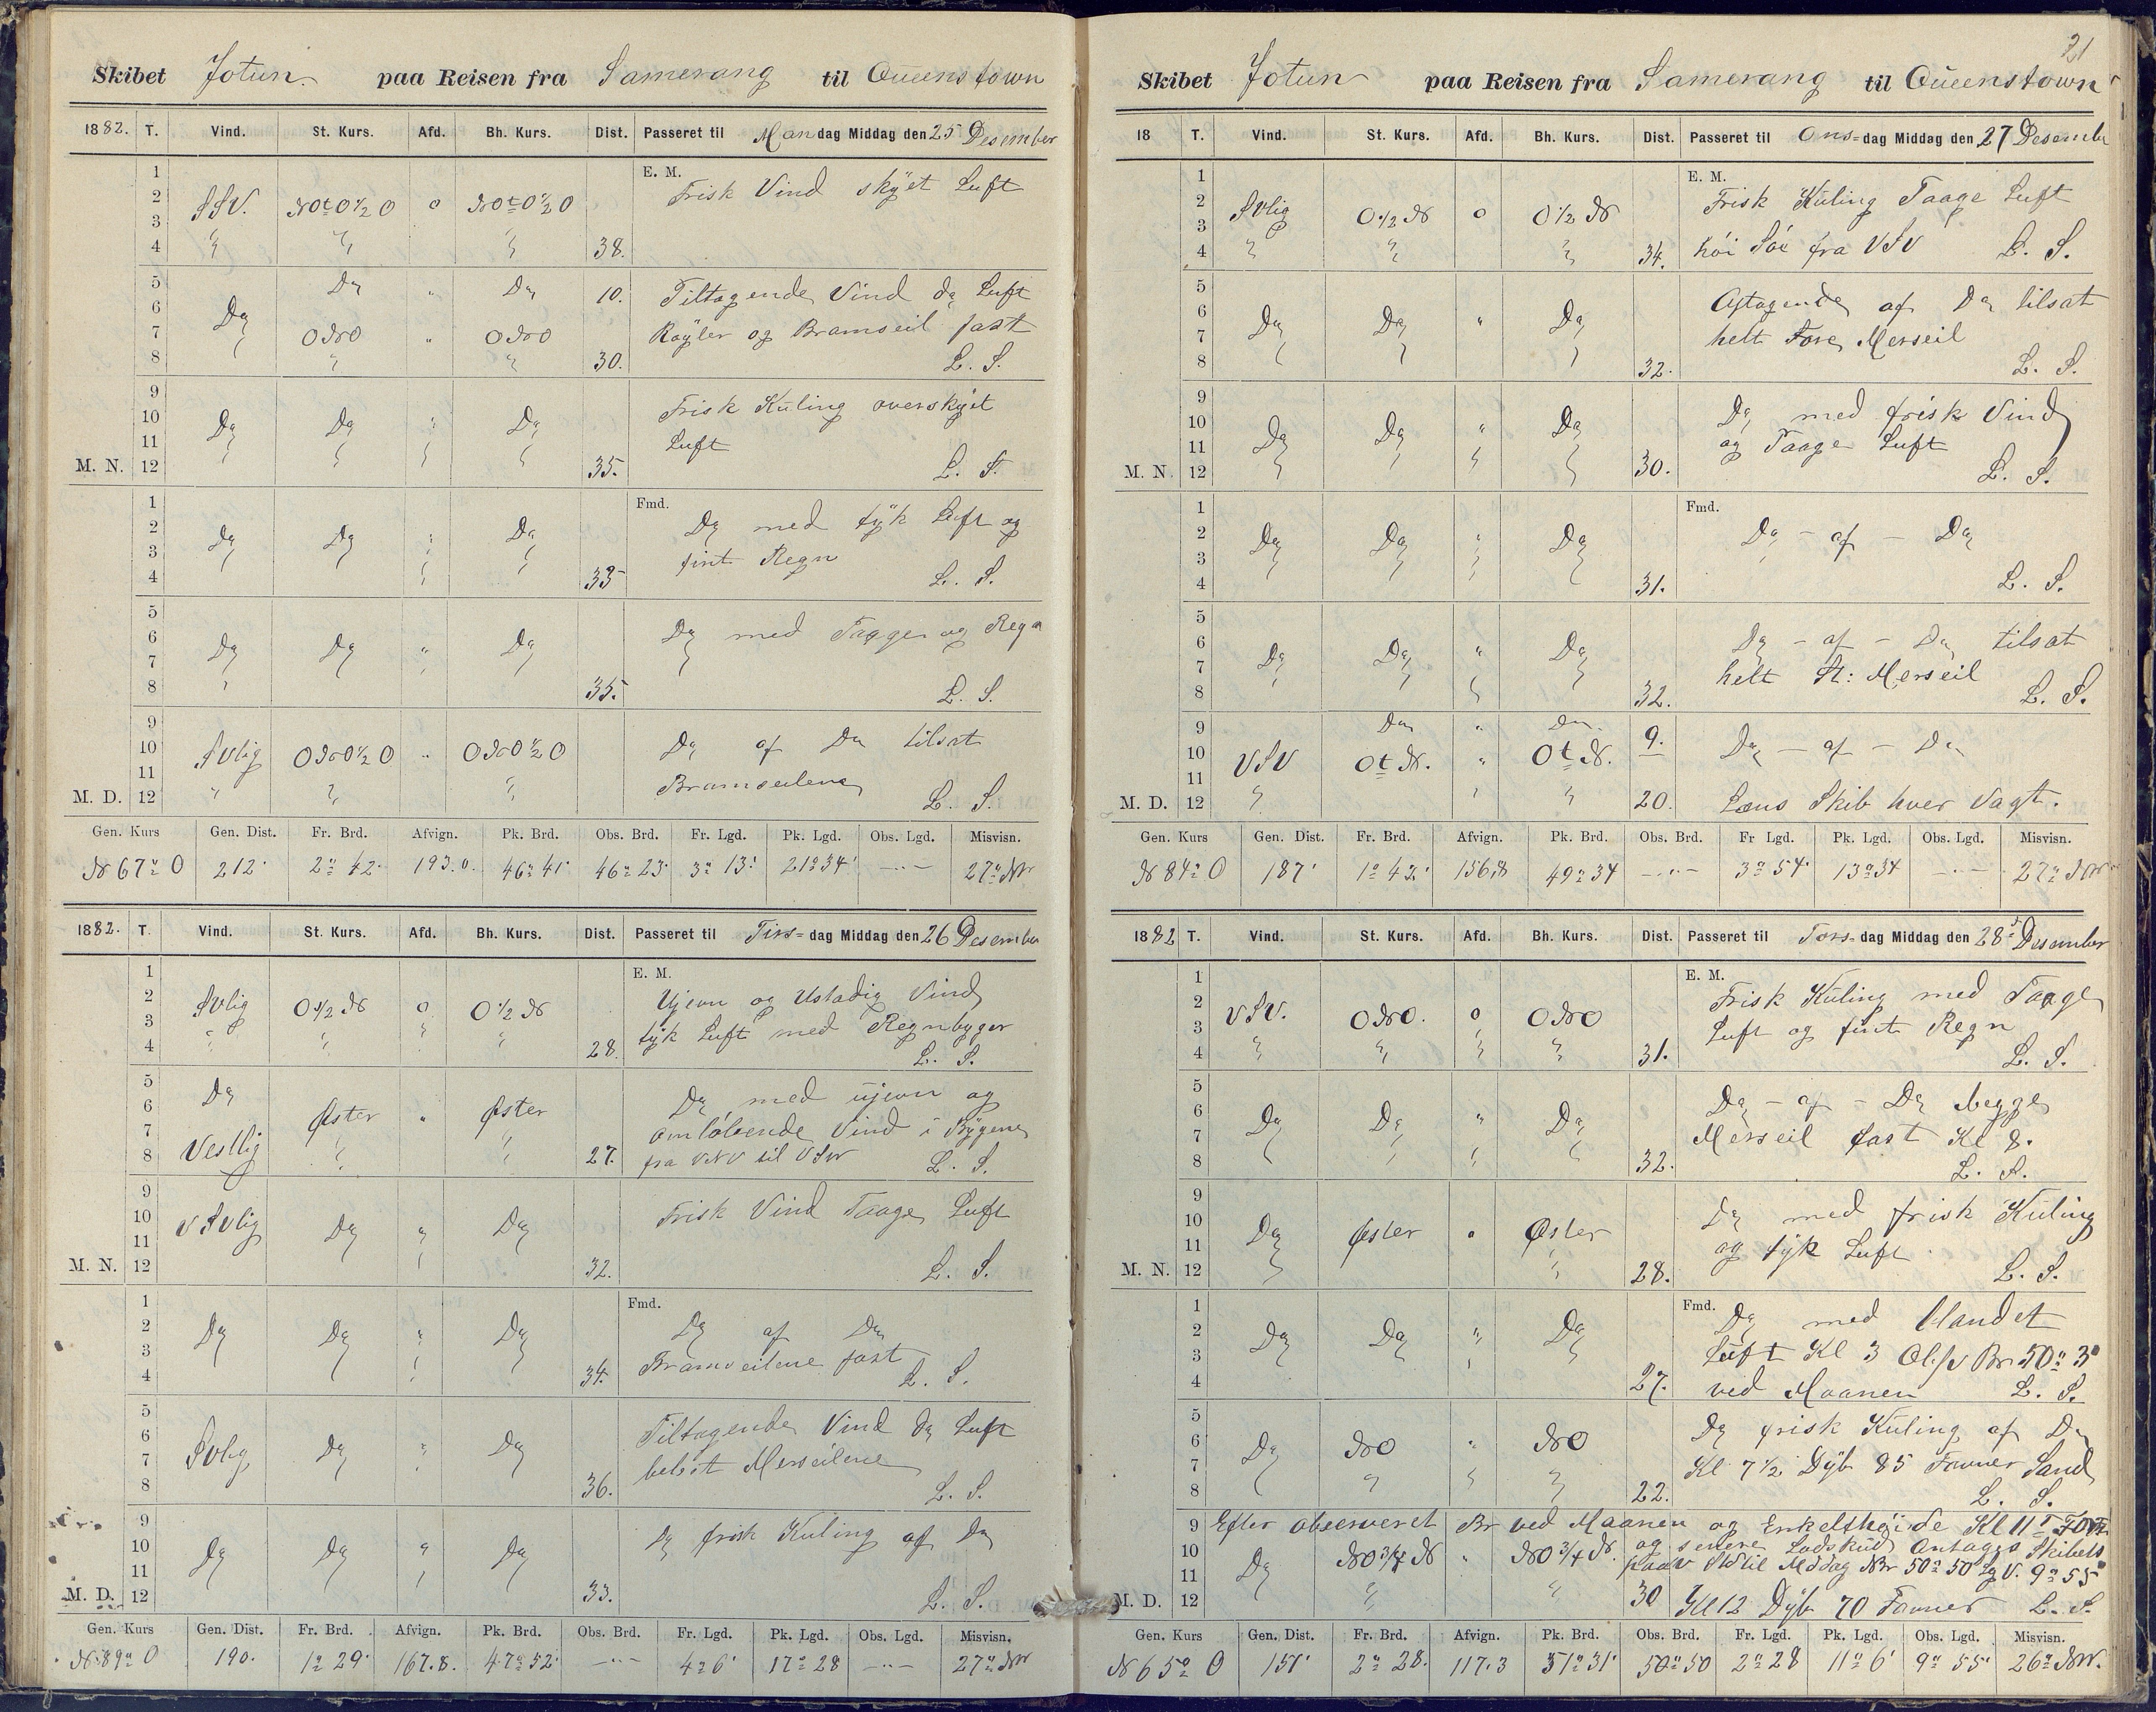 Skibet Jotun paa Reisen fra Samerang til Queenstown
1882. T. Vind. St. Kurs. Afd. Bh. Kurs. Dist. Passeret til Mandag Middag den 25 Desember
E. M.
1 2 3 4 SSV. NOt0 1/2 O 0 NOt0 1/2 O 38. Frisk Vind skyet Luft
5 6 7 8 Do Do " Do 10. Tiltagende Vind do Luft
ONO " ONO 30. Røyler og Bramseil fast
L. S.
9 10 11 M. N. 12 Do Do " Do 35. Frisk Kuling overskyet
Luft
L. S.
Fmd.
1 2 3 4 Do Do " Do 33 Do med tyk Luft og
fint Regn
L. S.
5 6 7 8 Do Do " Do 35. Do med Taage og Regn
L. S.
9 10 11 M. D. 12 SVlig ONO 1/2 O " ONO 1/2 O Do af Do tilsat
Bramseilene
L. S.
Gen. Kurs Gen. Dist. Fr. Brd. Afvign. Pk. Brd. Obs. Brd. Fr. Lgd. Pk. Lgd. Obs. Lgd. Misvisn.
N 67° O 212' 2° 42' 193.0. 46° 41' 46° 23' 3° 13' 21° 34' -"- 27° NW
1882. T. Vind. St. Kurs. Afd. Bh. Kurs. Dist. Passeret til Tirs=dag Middag den 26 Desember
E. M.
1 2 3 4 SVlig O 1/2 N 0 O 1/2 N 28. Ujevn og Ustadig Vind
tyk Luft med Regnbyger
L. S.
5 6 7 8 Do Øster " Øster 27. Do med ujevn og
Vestlig omløbende Vind i Bygene
fra VNV til VSV L. S.
9 10 11 M. N. 12 VSVlig Do " Do 32. Frisk Vind Taage Luft
L. S.
Fmd.
1 2 3 4 Do Do " Do 34. Do af Do
Bramseilene fast
L. S.
5 6 7 8 SVlig Do " Do 36. Tiltagende Vind do Luft
Merseilene
L. S.
9 10 11 M. D. 12 Do Do " Do 33. Do frisk Kuling af Do
L. S.
Gen. Kurs Gen. Dist. Fr. Brd. Afvign. Pk. Brd. Obs. Brd. Fr. Lgd. Pk. Lgd. Obs. Lgd. Misvisn.
N 89° O 190. 1° 29' 167.8. 47° 52' -"- 4° 6' 17° 28 -"- 27° NW
21
Skibet Jotun paa Reisen fra Samerang til Queenstown
18 T. Vind. St. Kurs. Afd. Bh. Kurs. Dist. Passeret til Ons=dag Middag den 27 Desember
E. M.
1 2 3 4 SVlig O 1/2 N 0 O 1/2 N 34. Frisk Kuling Taage Luft
høi Søe fra VSV L. S.
5 6 7 8 Do Do " Do 32. Aftagende af Do tilsat
helt Fore Merseil
L. S.
9 10 11 M. N. 12 Do Do " Do 30. Do med frisk Vind
og Taage Luft
L. S.
Fmd.
1 2 3 4 Do Do " Do 31. Do - af - Do
L. S.
5 6 7 8 Do Do " Do 32. Do - af - Do tilsat
helt St: Merseil
L. S.
9 10 11 M. D. 12 Do " Do 9. Do - af - Do
VSV Ot N. " Ot N. 20. Læns Skib hver Vagt.
Gen. Kurs Gen. Dist. Fr. Brd. Afvign. Pk. Brd. Obs. Brd. Fr Lgd. Pk. Lgd. Obs. Lgd. Misvisn.
N 84° O 187' 1° 42' 156.8 49° 34 -"- 3° 54' 13° 34 -"- 27° NW
1882 T. Vind. St. Kurs. Afd. Bh. Kurs. Dist. Passeret til Tors=dag Middag den 28 Desember
E. M.
1 2 3 4 VSV. ONO. 0 ONO 31. Frisk Kuling med Taage
Luft og fint Regn
L. S.
5 6 7 8 Do Do " Do 32. Do - af - Do begge
Merseil fast Kl 8.
L. S.
9 10 11 M. N. 12 Do Øster " Øster 28. Do med frisk Kuling
og tyk Luft
L. S.
Fmd.
1 2 3 4 Do Do " Do 27. Do med blandet
Luft Kl 3 Obs Br 50° 3'
ved Maanen L. S.
5 6 7 8 Do NO " NO 22. Do frisk Kuling af Do
Kl 7 1/2 Dyb 85 Favner Sand
L. S.
9 Efter observeret Br ved Maanen og Enkelthøide Kl 11
10 11 M. D. 12 Do NO 3/4 N " NO 3/4 N. 30 og senere Lodskud Antages Skibets
til Middag NBr 50° 50' Lg V. 9° 55'
Kl 12 Dyb 70 Favner L. S.
Gen. Kurs Gen. Dist. Fr. Brd. Afvign. Pk. Brd. Obs. Brd. Fr. Lgd. Pk. Lgd. Obs. Lgd. Misvisn.
N 65° O 151' 2° 28. 117.3 51° 31' 50° 50 2° 28 11° 6' 9° 55' 26° NW.